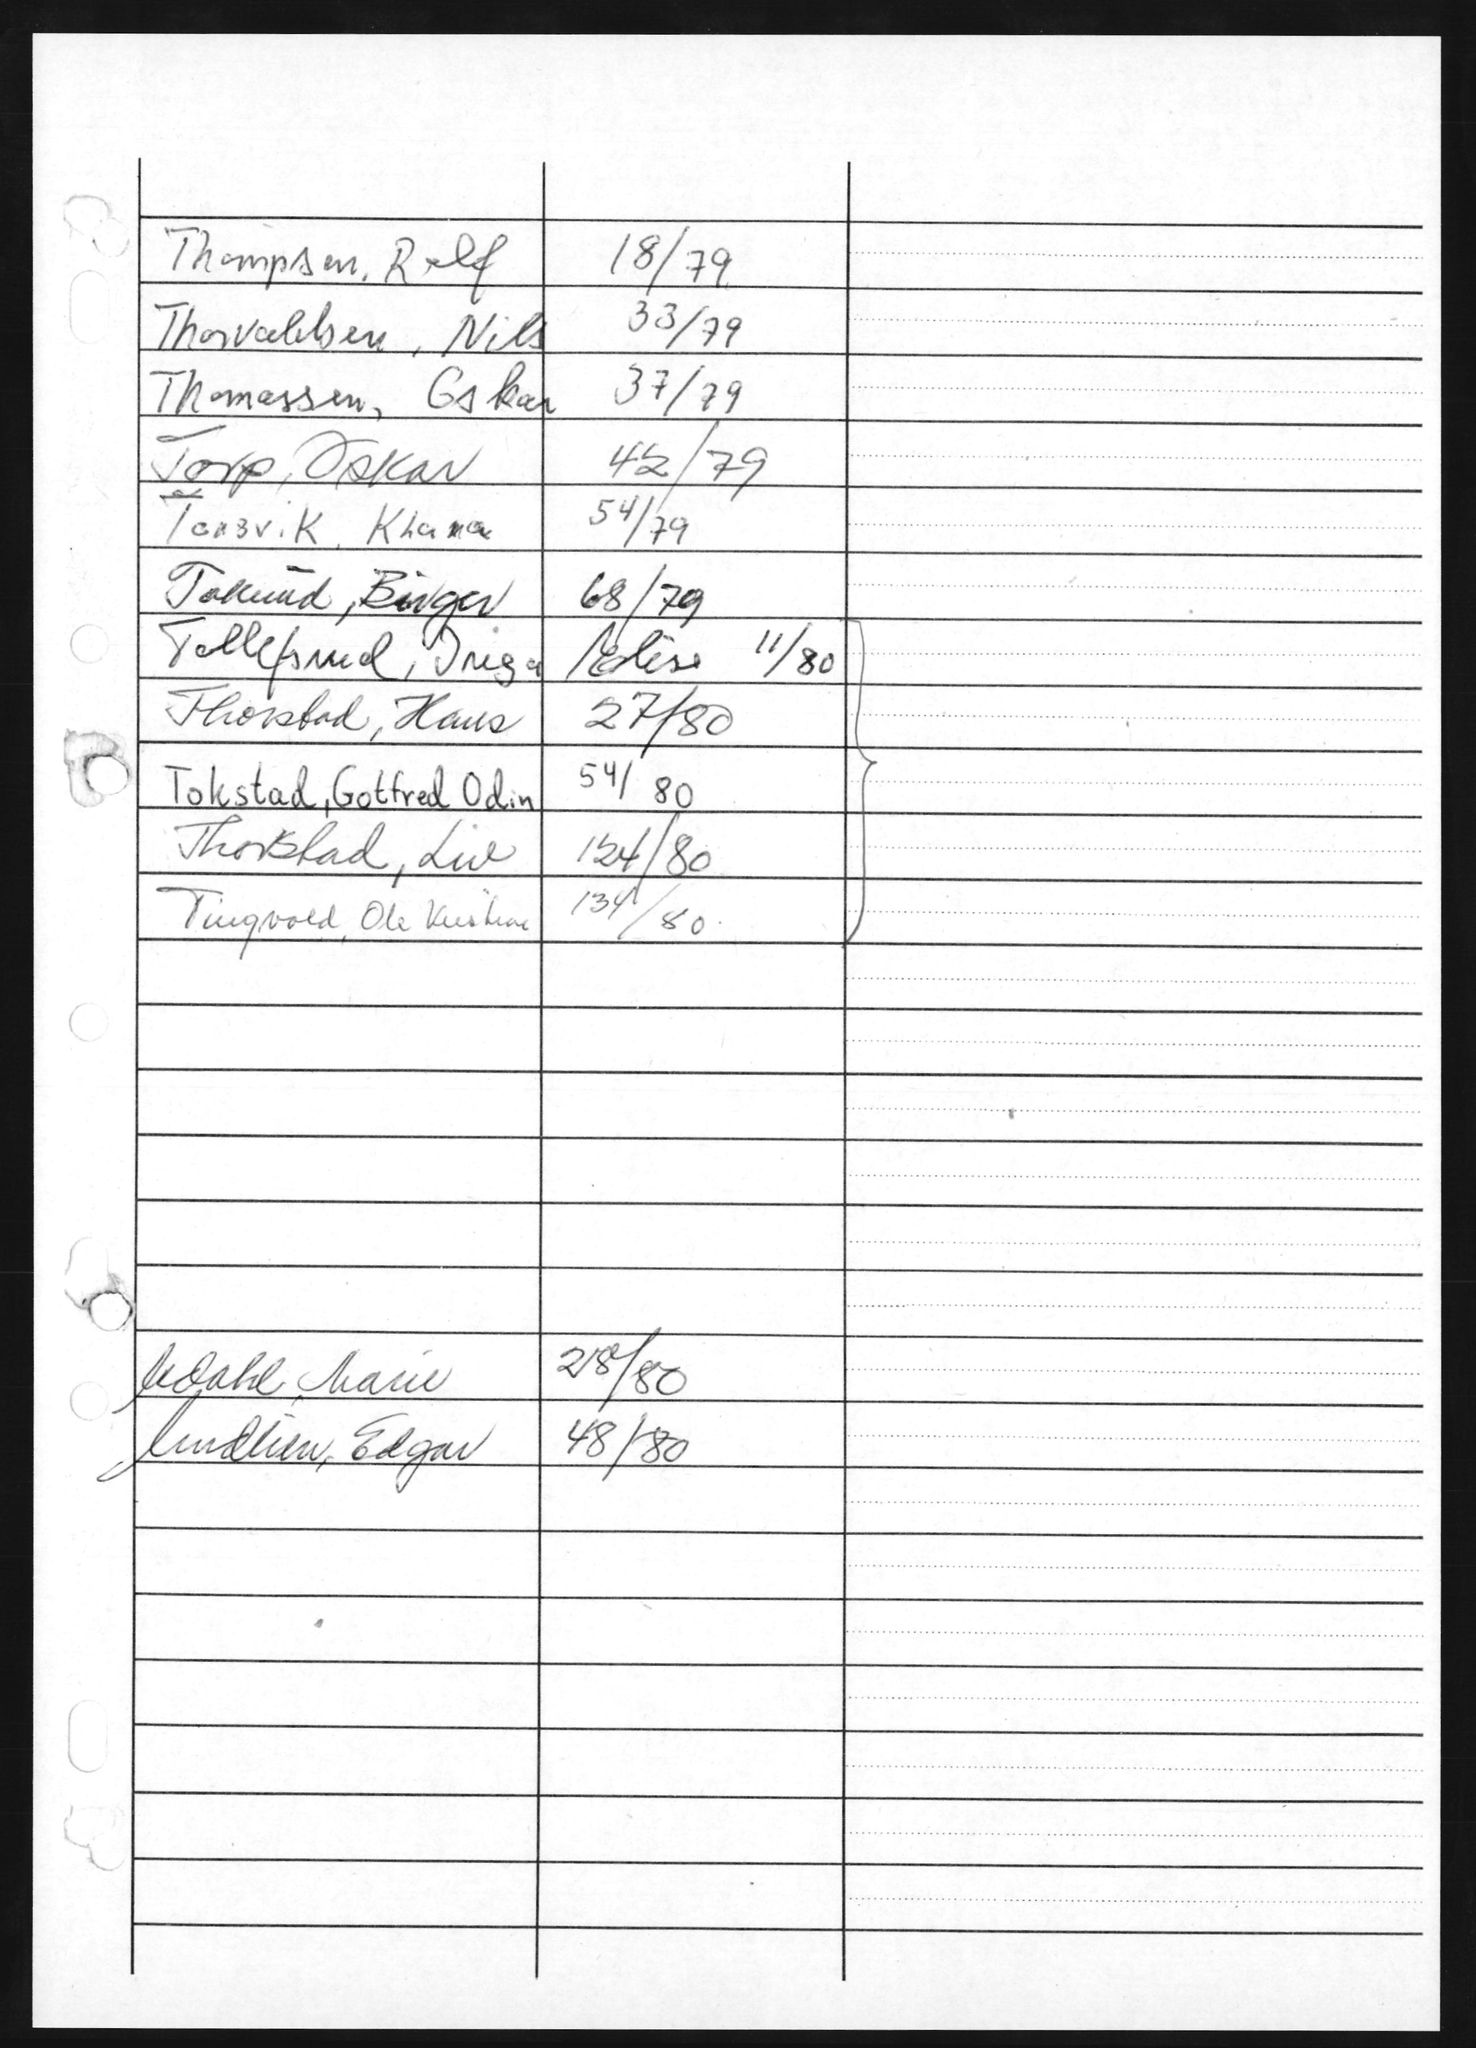 Thompsen, Rolf 18/79
Thorvaldsen, Nils 33/79
Thomassen, Oskar 37/79
Torp, Oskar 42/79
54/79
Birger 68/79
Tollefsrud, Inga 11/80
Thorstad, Hans 27/80
Tokstad, Gotfred Odin 54/80
Thorstad, Liv 124/80
Tingvold, Ole Kristian 134/80
Udahl, Marie 28/80
Undlien, Edgar 48/80